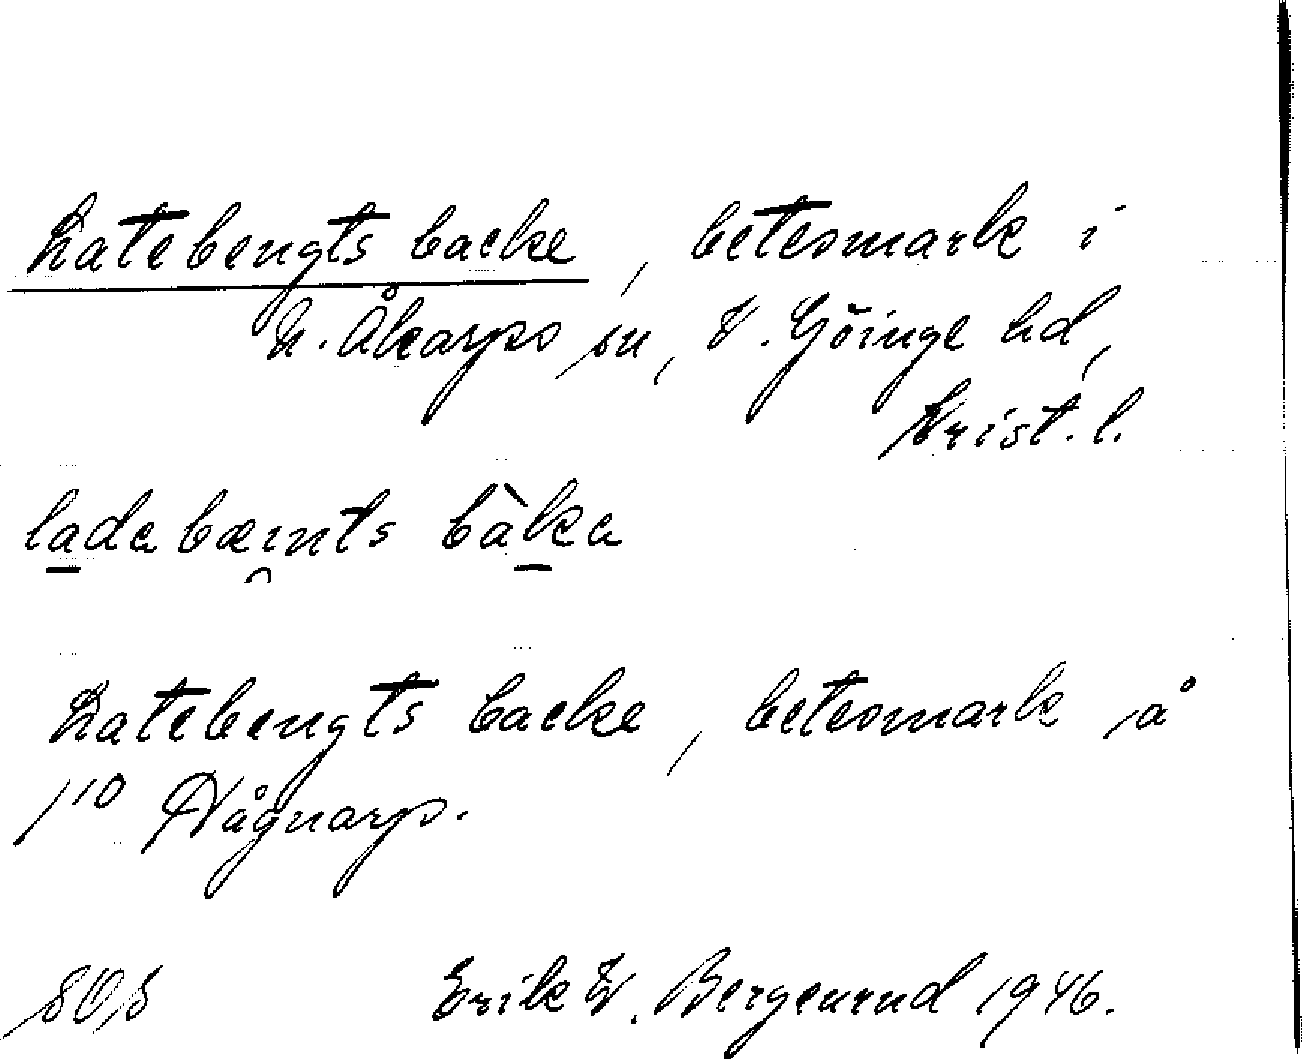 Latebengts backe, betesmark i
N. Åkarps sn, V. Göinge hd,
Krist. l.
lada bæints bàka
Latebengts backe, betesmark å
1¹⁰ Vågnarp.
Erik W. Bergenrud 1946.